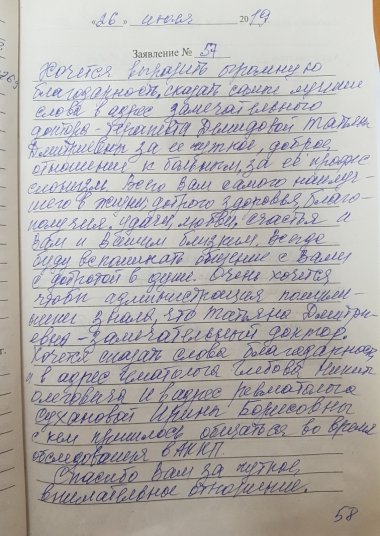 «26» июля 2019
Заявление № 57
Хочется выразить огромную
благодарность, сказать самые лучшие
слова в адрес замечательного
доктора-терапевта Демидовой Татьяны
Дмитриевны за ее чуткое, доброе
отношение к больным, за ее профес
сионализм. Всего Вам самого наилуч-
шего в жизни: доброго здоровья, благо-
получия, удачи, любви, счастья и
Вам и Вашим близким, всегда
буду вспоминать общение с Вами
с добротой в душе. Очень хочется
чтобы администрация поликли-
ники знала, что Татьяна Дмитри-
евна - замечательный доктор.
Хочется сказать слова благодарности
и в адрес гематолога Глебова Никит
Олеговича и в адрес ревматолога
Сухановой Ирины Борисовны
с кем пришлось общаться во время
обследования в АККП.
Спасибо Вам за чуткое,
внимательное отношение.
58